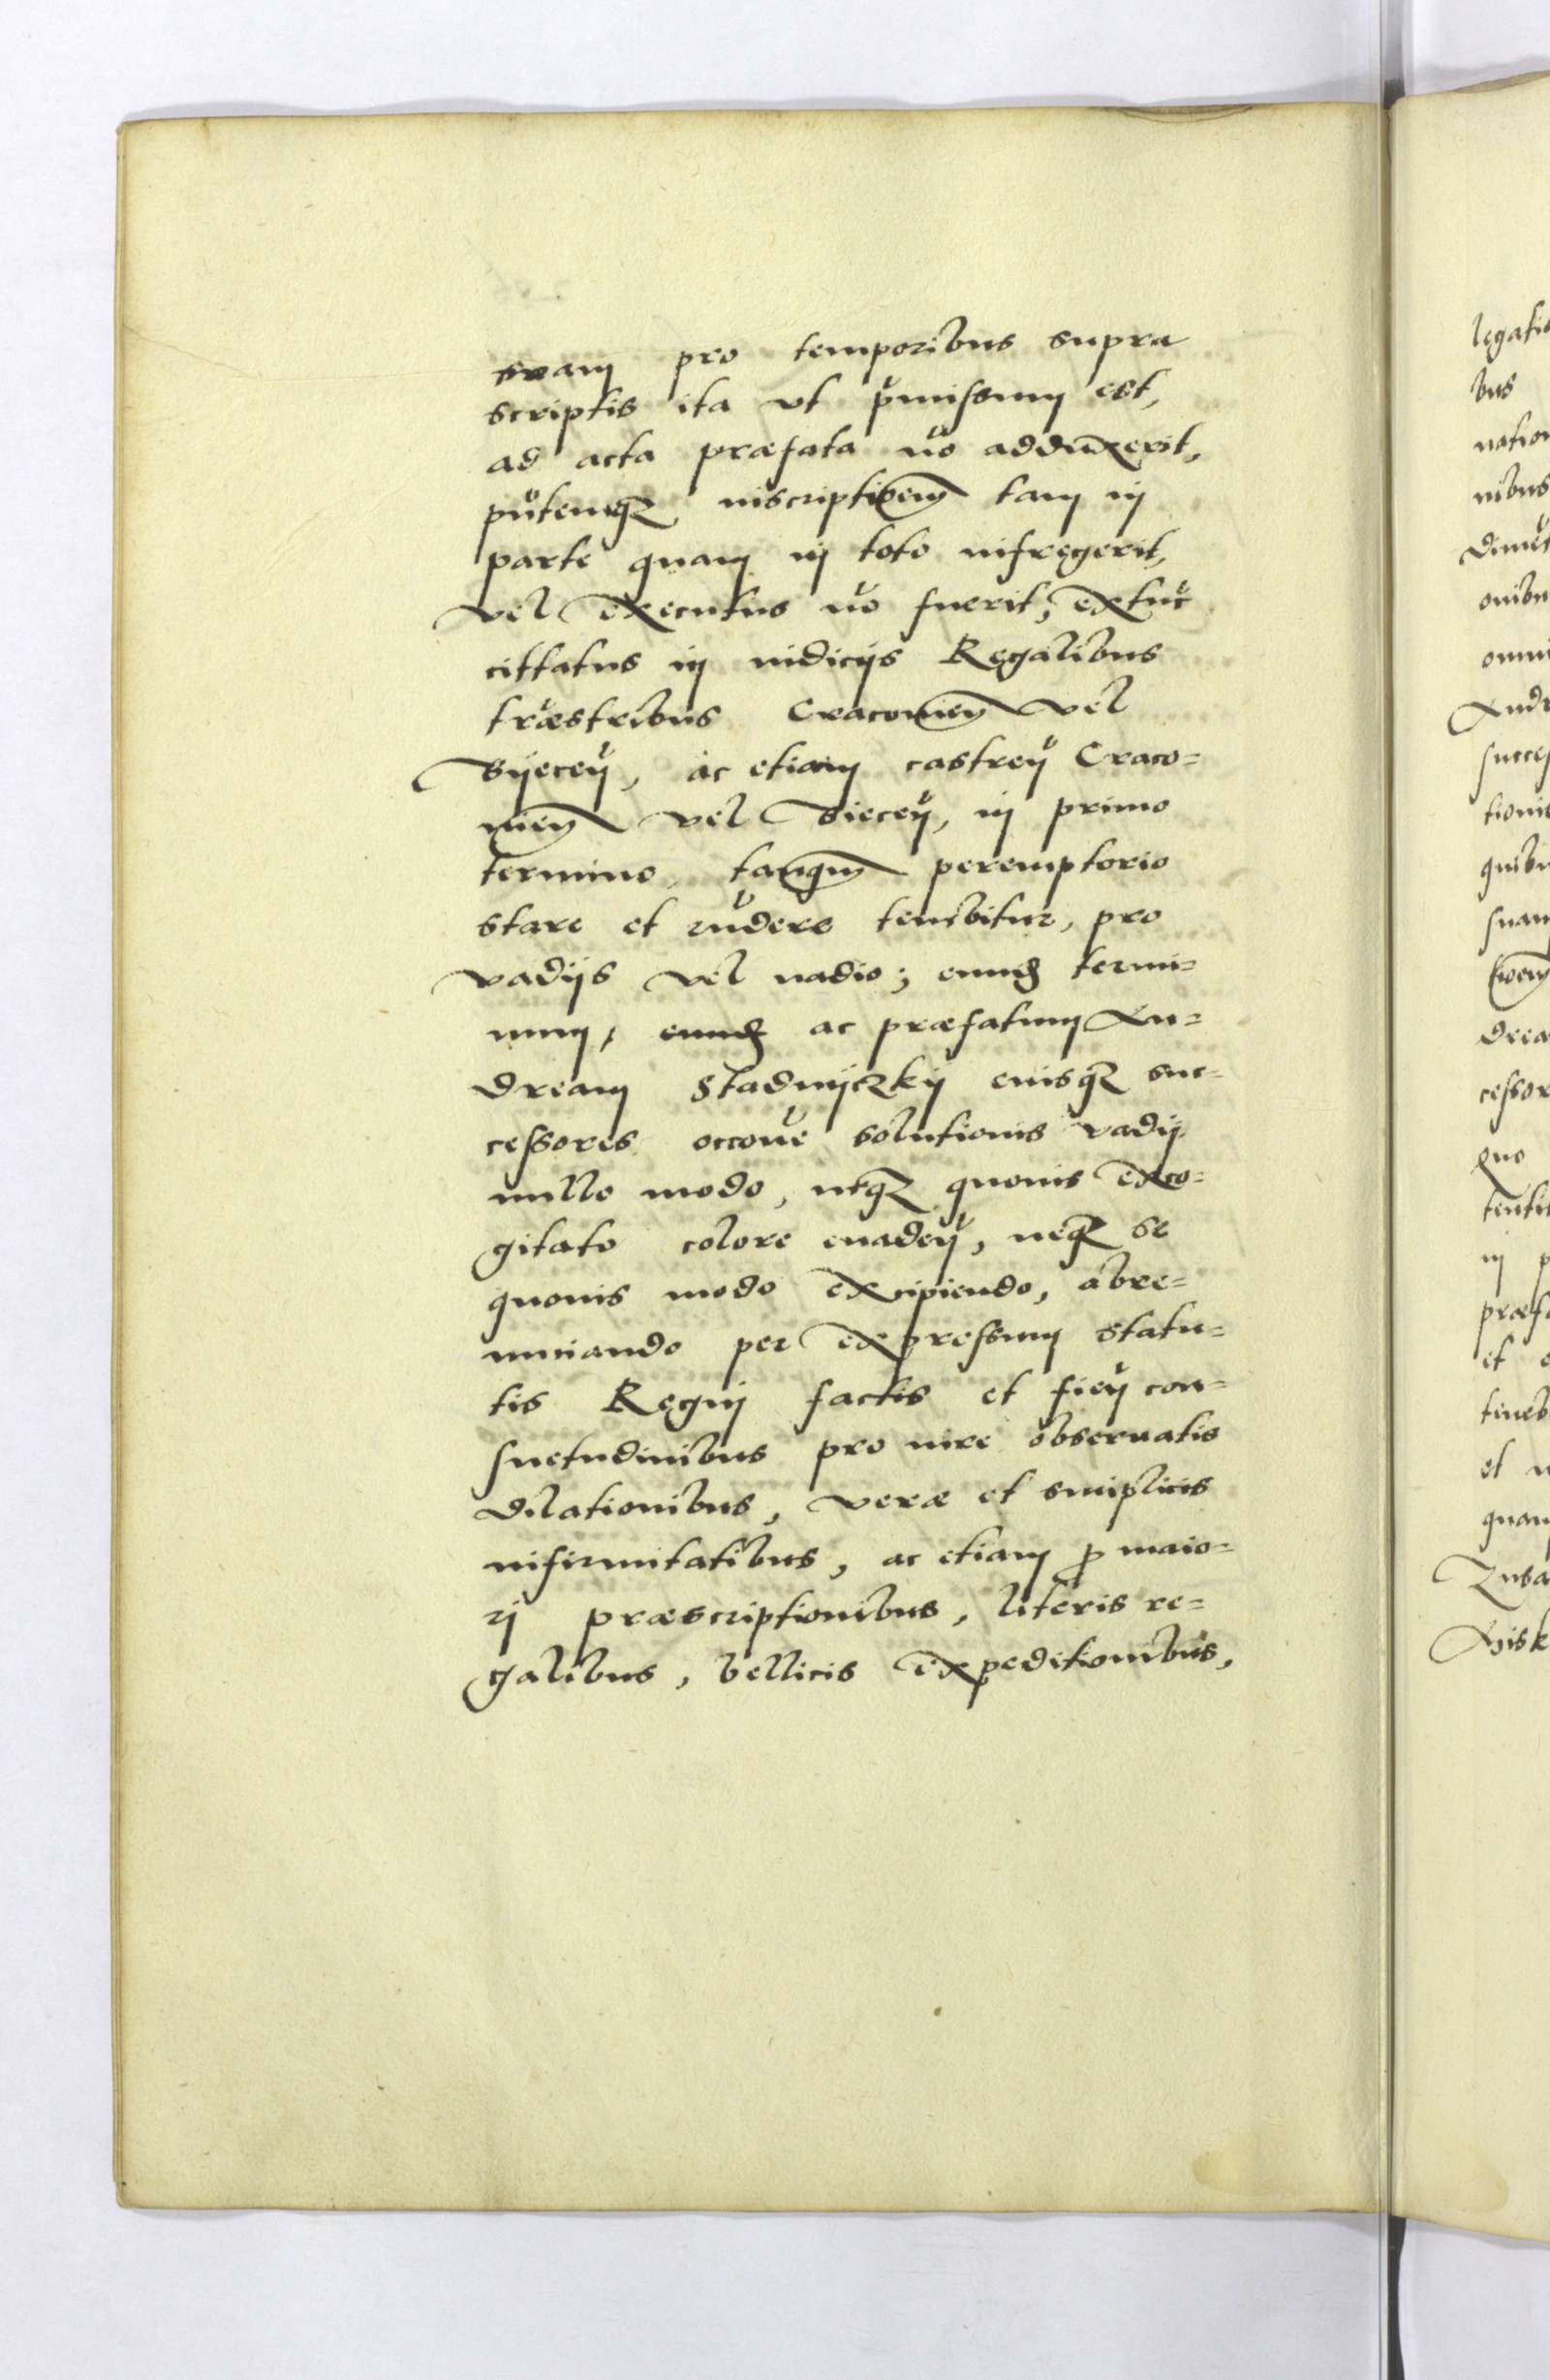 suam pro temporibus supra
scriptis ita vt pmissum est,
ad acta præfata no adduxerit,
pntemqz inscriptioem tam in
parte quam in toto infregerit,
vel executus no fuerit, extuc
cittatus in iudicijs Regalibus
træstribus Cracouien vel
Byecen, ac etiam castren Craco=
uien vel Biecen, in primo
termino tanqm peremptorio
stare et rndere tenebitur, pro
vadijs vel vadio; eund termi=
num, eund ac præfatum An=
dream Stadnyczky eiusqz suc=
cessores occoue solutionis vadij
nullo modo, neqz quouis exco=
gitato colore euaden, neqz se
quouis modo excipiendo, abre=
nunciando per expressum statu=
tis Regni factis et fien con=
suetudinibus pro iure obseruatis
dilationibus, veræ et simplicis
infirmitatibus, ac etiam p maio=
ri præscriptionibus, literis re=
galibus, bellicis expeditionibus,
legatio
bus
nation
nibus
omni
Andr
succes
tionis
quibu
suam
drea
cessor
quo
in p
præfa
et
teneb
et
quam